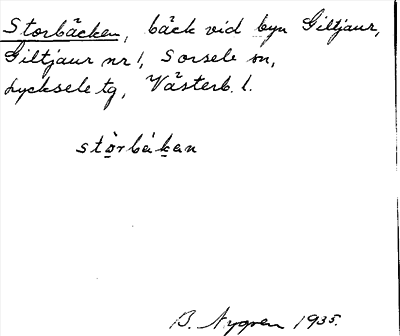 Storbäcken, bäck vid byn Giltjaur,
Giltjaur nr 1, Sorsele sn,
Lycksele tg, Västerb. l.
stòrbákan
B. Nygren 1935.